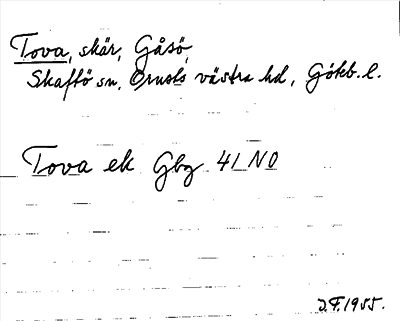 Tova, skär, Gåsö,
Skaftö sn, Orusts västra hd, Göteb. l.
Tova ek Gbg 41 NO
D.F. 1955.